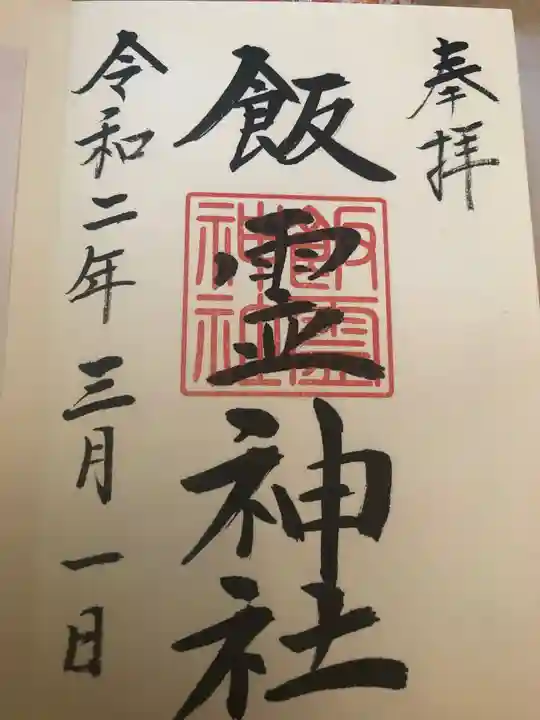 奉拝
飯霊神社
飯霊
神社
令和二年三月一日